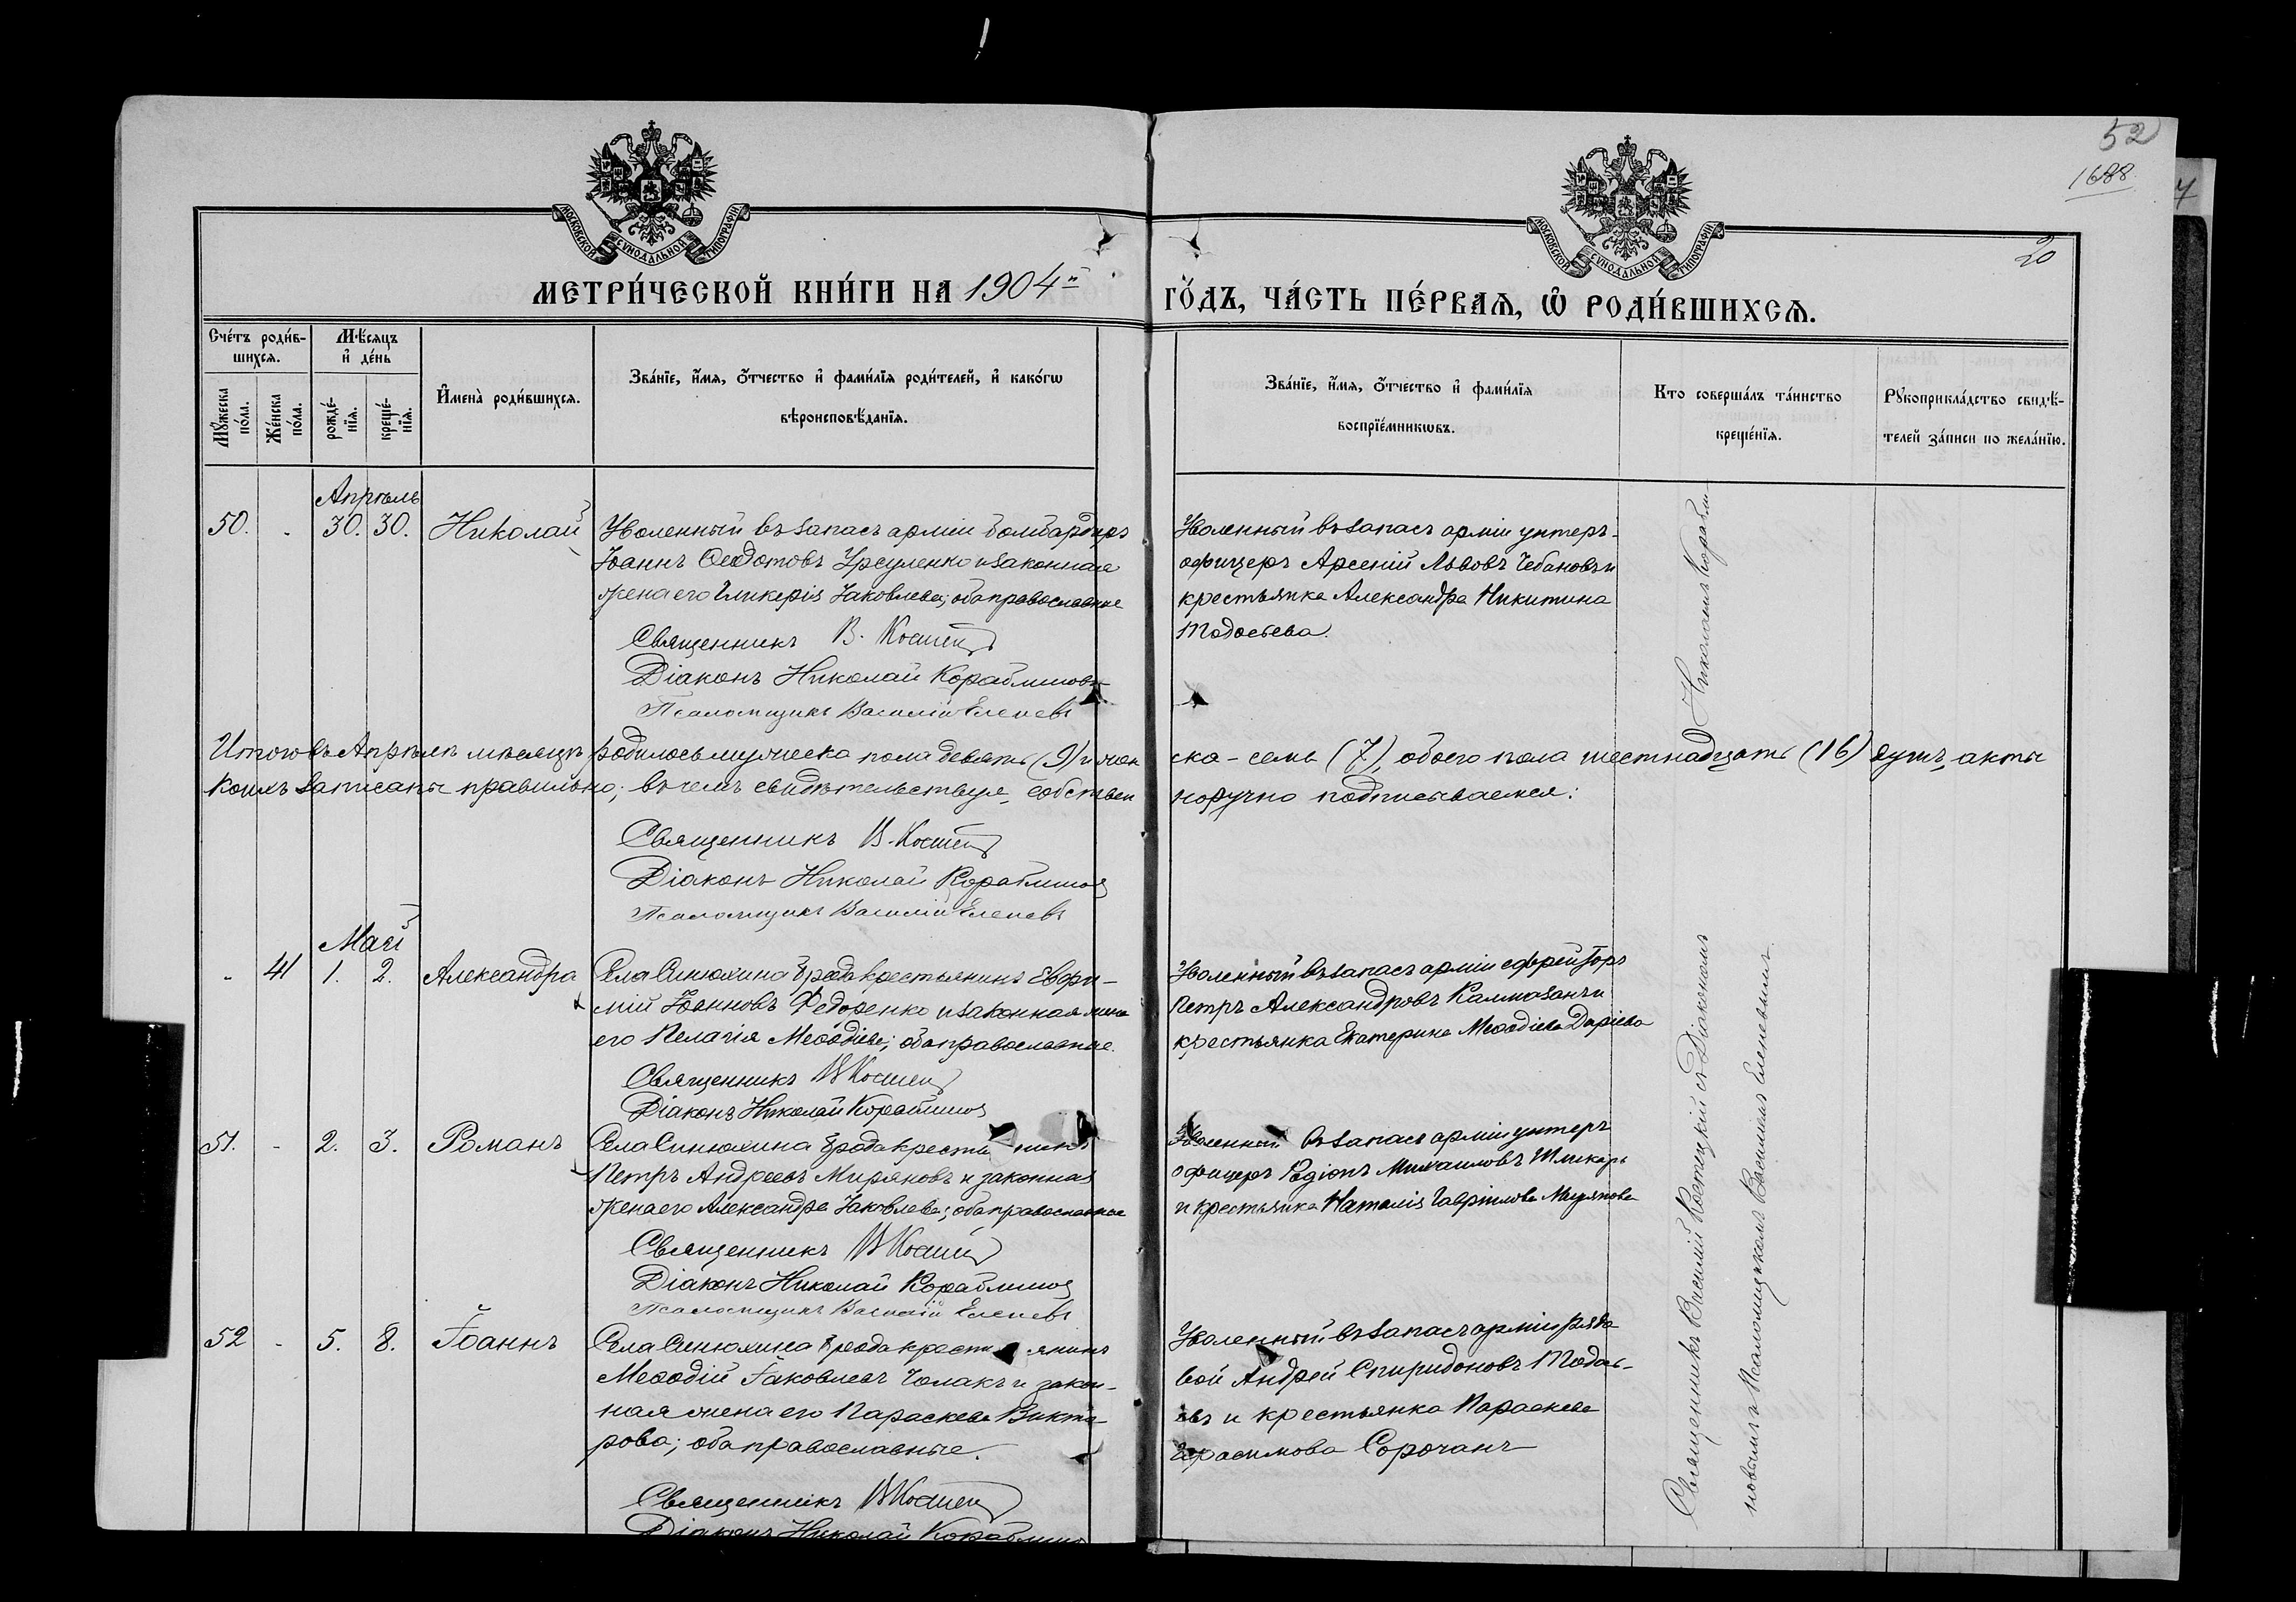 52
1688
20
МОСКОВСКОЙ СУНОДАЛЬНОЙ ТИПОГРАФІИ
МОСКОВСКОЙ СУНОДАЛЬНОЙ ТИПОГРАФІИ
МЕТРИ́ЧЕСКОЙ КНИ́ГИ НА 1904й
ГО́ДЪ, ЧА́СТЬ ПЕ́РВАѦ, Ѡ РОДИ́ВШИХСѦ.
Сче́тъ роди́вшихсѧ.
Мꙋ́жеска по́ла.
Же́нска по́ла.
Мѣ́сѧцъ и҆ де́нь
рожде́нїѧ.
креще́нїѧ.
И҆мена̀ роди́вшихсѧ.
Зва́нїе, и҆́мѧ, ѻ҆́тчество и҆ фами́лїѧ роди́телей, и҆ како́гѡ
вѣроисповѣ́данїѧ.
Зва́нїе, и҆́мѧ, ѻ҆́тчество и҆ фами́лїѧ
воспрїе́мникѡвъ.
Кто соверша́лъ та́инство
креще́нїѧ.
Рꙋкоприкла́дство свидѣ́-
телей за́писи по жела́нїю.
Апрѣль
50. - 30. 30. Николай
Уволенный въ запасъ арміи бомбардиръ
Іоаннъ Ѳеодотовъ Урсуленко и законная
жена его Гликерія Іаковлева; оба православные
Священникъ В. Костец
Діаконъ Николай Кораблиновъ
Псаломщикъ Василій Еленевъ
Уволенный въ запасъ арміи унтеръ-
офицеръ Арсеній Львовъ Чебановъ и
крестьянка Александра Никитина
Тодосьева.
Итого въ Апрѣлѣ мѣсяцѣ родилось мужеска пола девять (9) и жен
ска - семь (7), обоего пола шестнадцать (16) душъ, акты
коихъ записаны правильно; въ чемъ свидѣтельствуя, собствен
норучно подписываемся:
Священникъ В. Костец
Діаконъ Николай Кораблинов
Псаломщикъ Василій Еленевъ
Май
- 41 1. 2. Александра
Села Синюхина Брода крестьянинъ Евфи-
мій Іоанновъ Федоренко и законная жена
его Пелагія Меѳодіева; оба православные.
Священникъ В Костец
Діаконъ Николай Кораблинов
Уволенный въ запасъ арміи ефрейторъ
Петръ Александровъ Калмазанъ и
крестьянка Екатерина Меѳодіева Даріева
51. - 2. 3. Романъ
Села Синюхина Брода крестьянинъ
Петръ Андреевъ Миряновъ и законная
жена его Александра Іаковлева; оба православные
Священникъ В Костец
Діаконъ Николай Кораблинов
Псаломщикъ Василій Еленевъ
Уволенный въ запасъ арміи унтеръ
офицеръ Родіонъ Михаиловъ Шликарь
и крестьянка Наталія Гавріилова Мирянова
52 - 5. 8. Іоаннъ
Села Синюхина Брода крестьянинъ
Меѳодій Іаковлевъ Чолакъ и закон-
ная жена его Параскева Викто-
рова; оба православные.
Священникъ В Костец
Діаконъ Николай Кораблинов
Уволенный въ запасъ арміи рядо-
вой Андрей Спиридоновъ Тодось-
евъ и крестьянка Параскева
Герасимова Сорочанъ
Священникъ Василій Костецкій съ Діакономъ Николаемъ Корабли-
новымъ и Псаломщикомъ Василіемъ Еленевымъ.